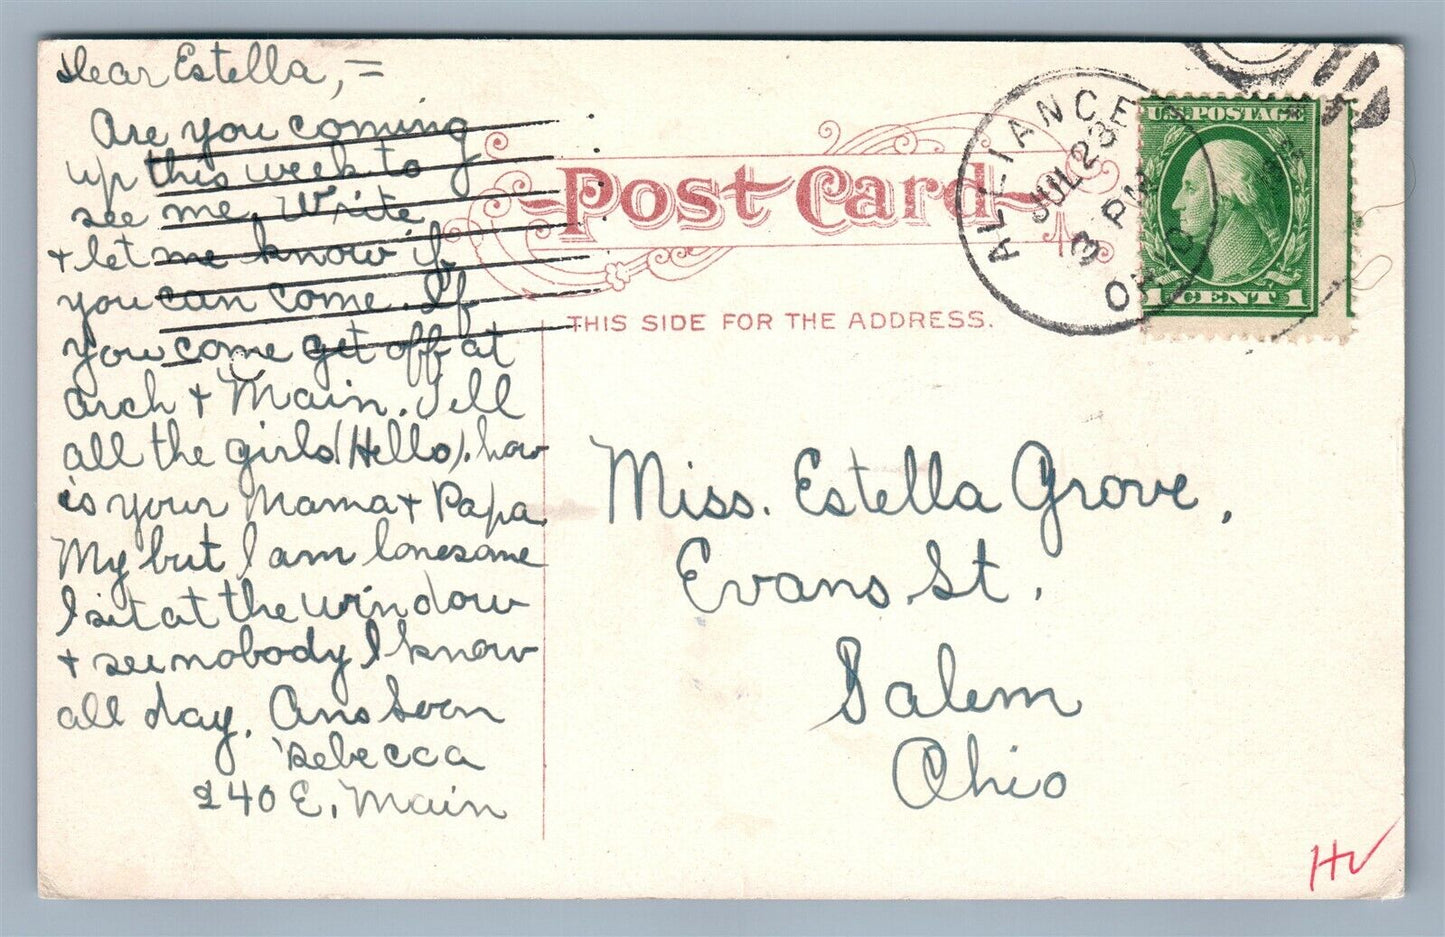 Dear Estella, =
Are you coming
up this week to
see me. Write
+ let me know if
you can come. If
you come get off at
Arch + Main. Tell
all the girls (Hello). how
is your Mama + Papa.
My but I am lonesome
I sit at the window
+ see nobody I know
all day. Ans Soon
Rebecca
240 E. Main
Post Card
THIS SIDE FOR THE ADDRESS.
ALLIANCE
JUL 23
3 PM
OHIO
U.S. POSTAGE
1 CENT 1
Miss. Estella Grove,
Evans. St.
Salem
Ohio